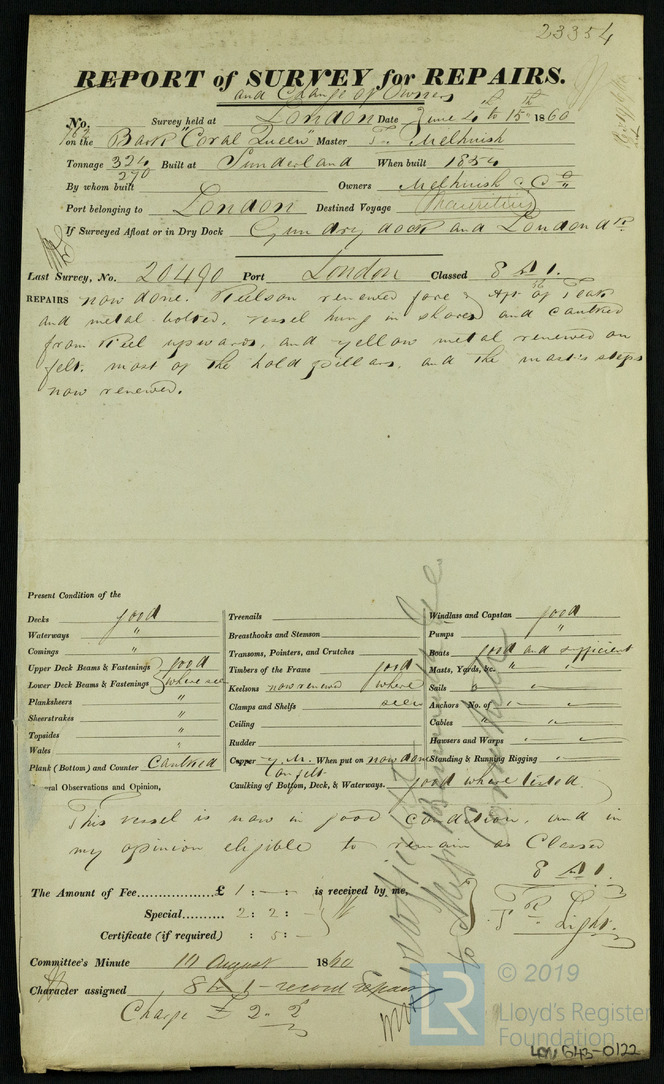 23354
REPORT of SURVEY for REPAIRS.
and Change of Owners
No. Survey held at London Date June 4th to 15th 1860
on the Bark "Coral Queen" Master T. Melhuish
Tonnage 324 Built at Sunderland When built 1854
290
By whom built Owners Melhuish & Co
Port belonging to London Destined Voyage Mauritius
If Surveyed Afloat or in Dry Dock Gun dry dock and London do
Last Survey, No. 20490 Port London Classed 8 A 1.
REPAIRS now done. Keelson renewed fore & Aft of Teak
and metal bolted, vessel hung in shores and caulked
from keel upwards, and yellow metal renewed on
felt, most of the hold pillars, and the mast's steps
now renewed.
Present Condition of the
Decks good
Waterways "
Comings "
Upper Deck Beams & Fastenings good
Lower Deck Beams & Fastenings where seen
Planksheers "
Sheerstrakes "
Topsides "
Wales "
Plank (Bottom) and Counter Caulked
Treenails
Breasthooks and Stemson
Transoms, Pointers, and Crutches
Timbers of the Frame good
Keelsons now renewed where
Clamps and Shelfs seen
Ceiling
Rudder
Copper y.m. When put on now done
on felt
Caulking of Bottom, Deck, & Waterways. good where tested
Windlass and Capstan good
Pumps "
Boats good and sufficient
Masts, Yards, &c. " "
Sails
Anchors No. of
Cables "
Hawsers and Warps
Standing & Running Rigging
al Observations and Opinion,
This vessel is now in good condition, and in
my opinion eligible to remain as Classed
8 A 1.
The Amount of Fee £ 1 : – : – is received by me,
Special 2 : 2 : –
Certificate (if required) : 5 : –
T. R. Light
Committee's Minute 10 August 1860
Character assigned 8 A 1 - record repairs
Charge £ 2. 2
© 2019
LR
Lloyd's Register
Foundation
LON 643-0122